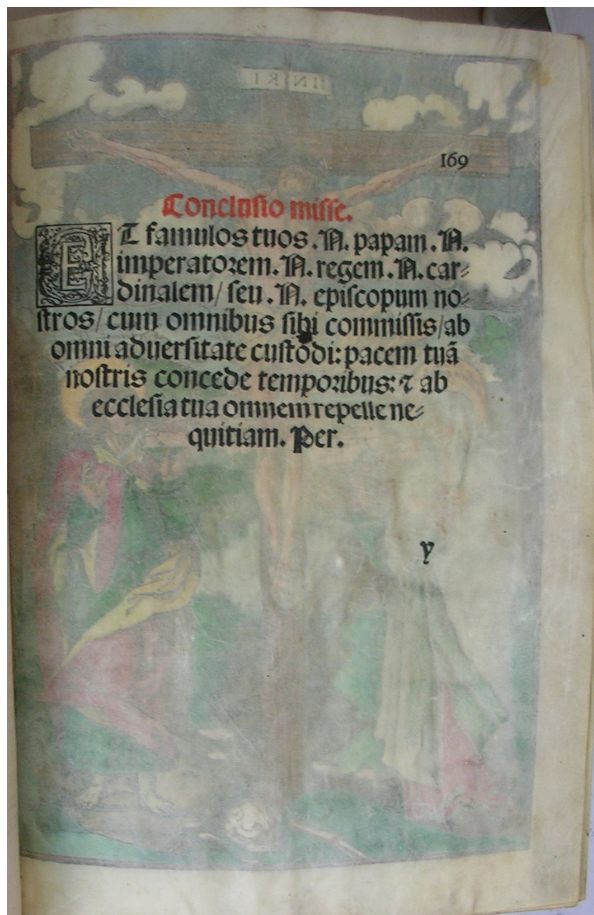 INRI
169
Conclusio misse.
ET famulos tuos .N. papam .N.
imperatorem .N. regem .N. car⸗
dinalem/ seu .N. episcopum no⸗
stros/ cum omnibus sibi commissis/ ab
omni aduersitate custodi: pacem tuã
nostris concede temporibus: ⁊ ab
ecclesia tua omnem repelle ne⸗
quitiam. Per.
y